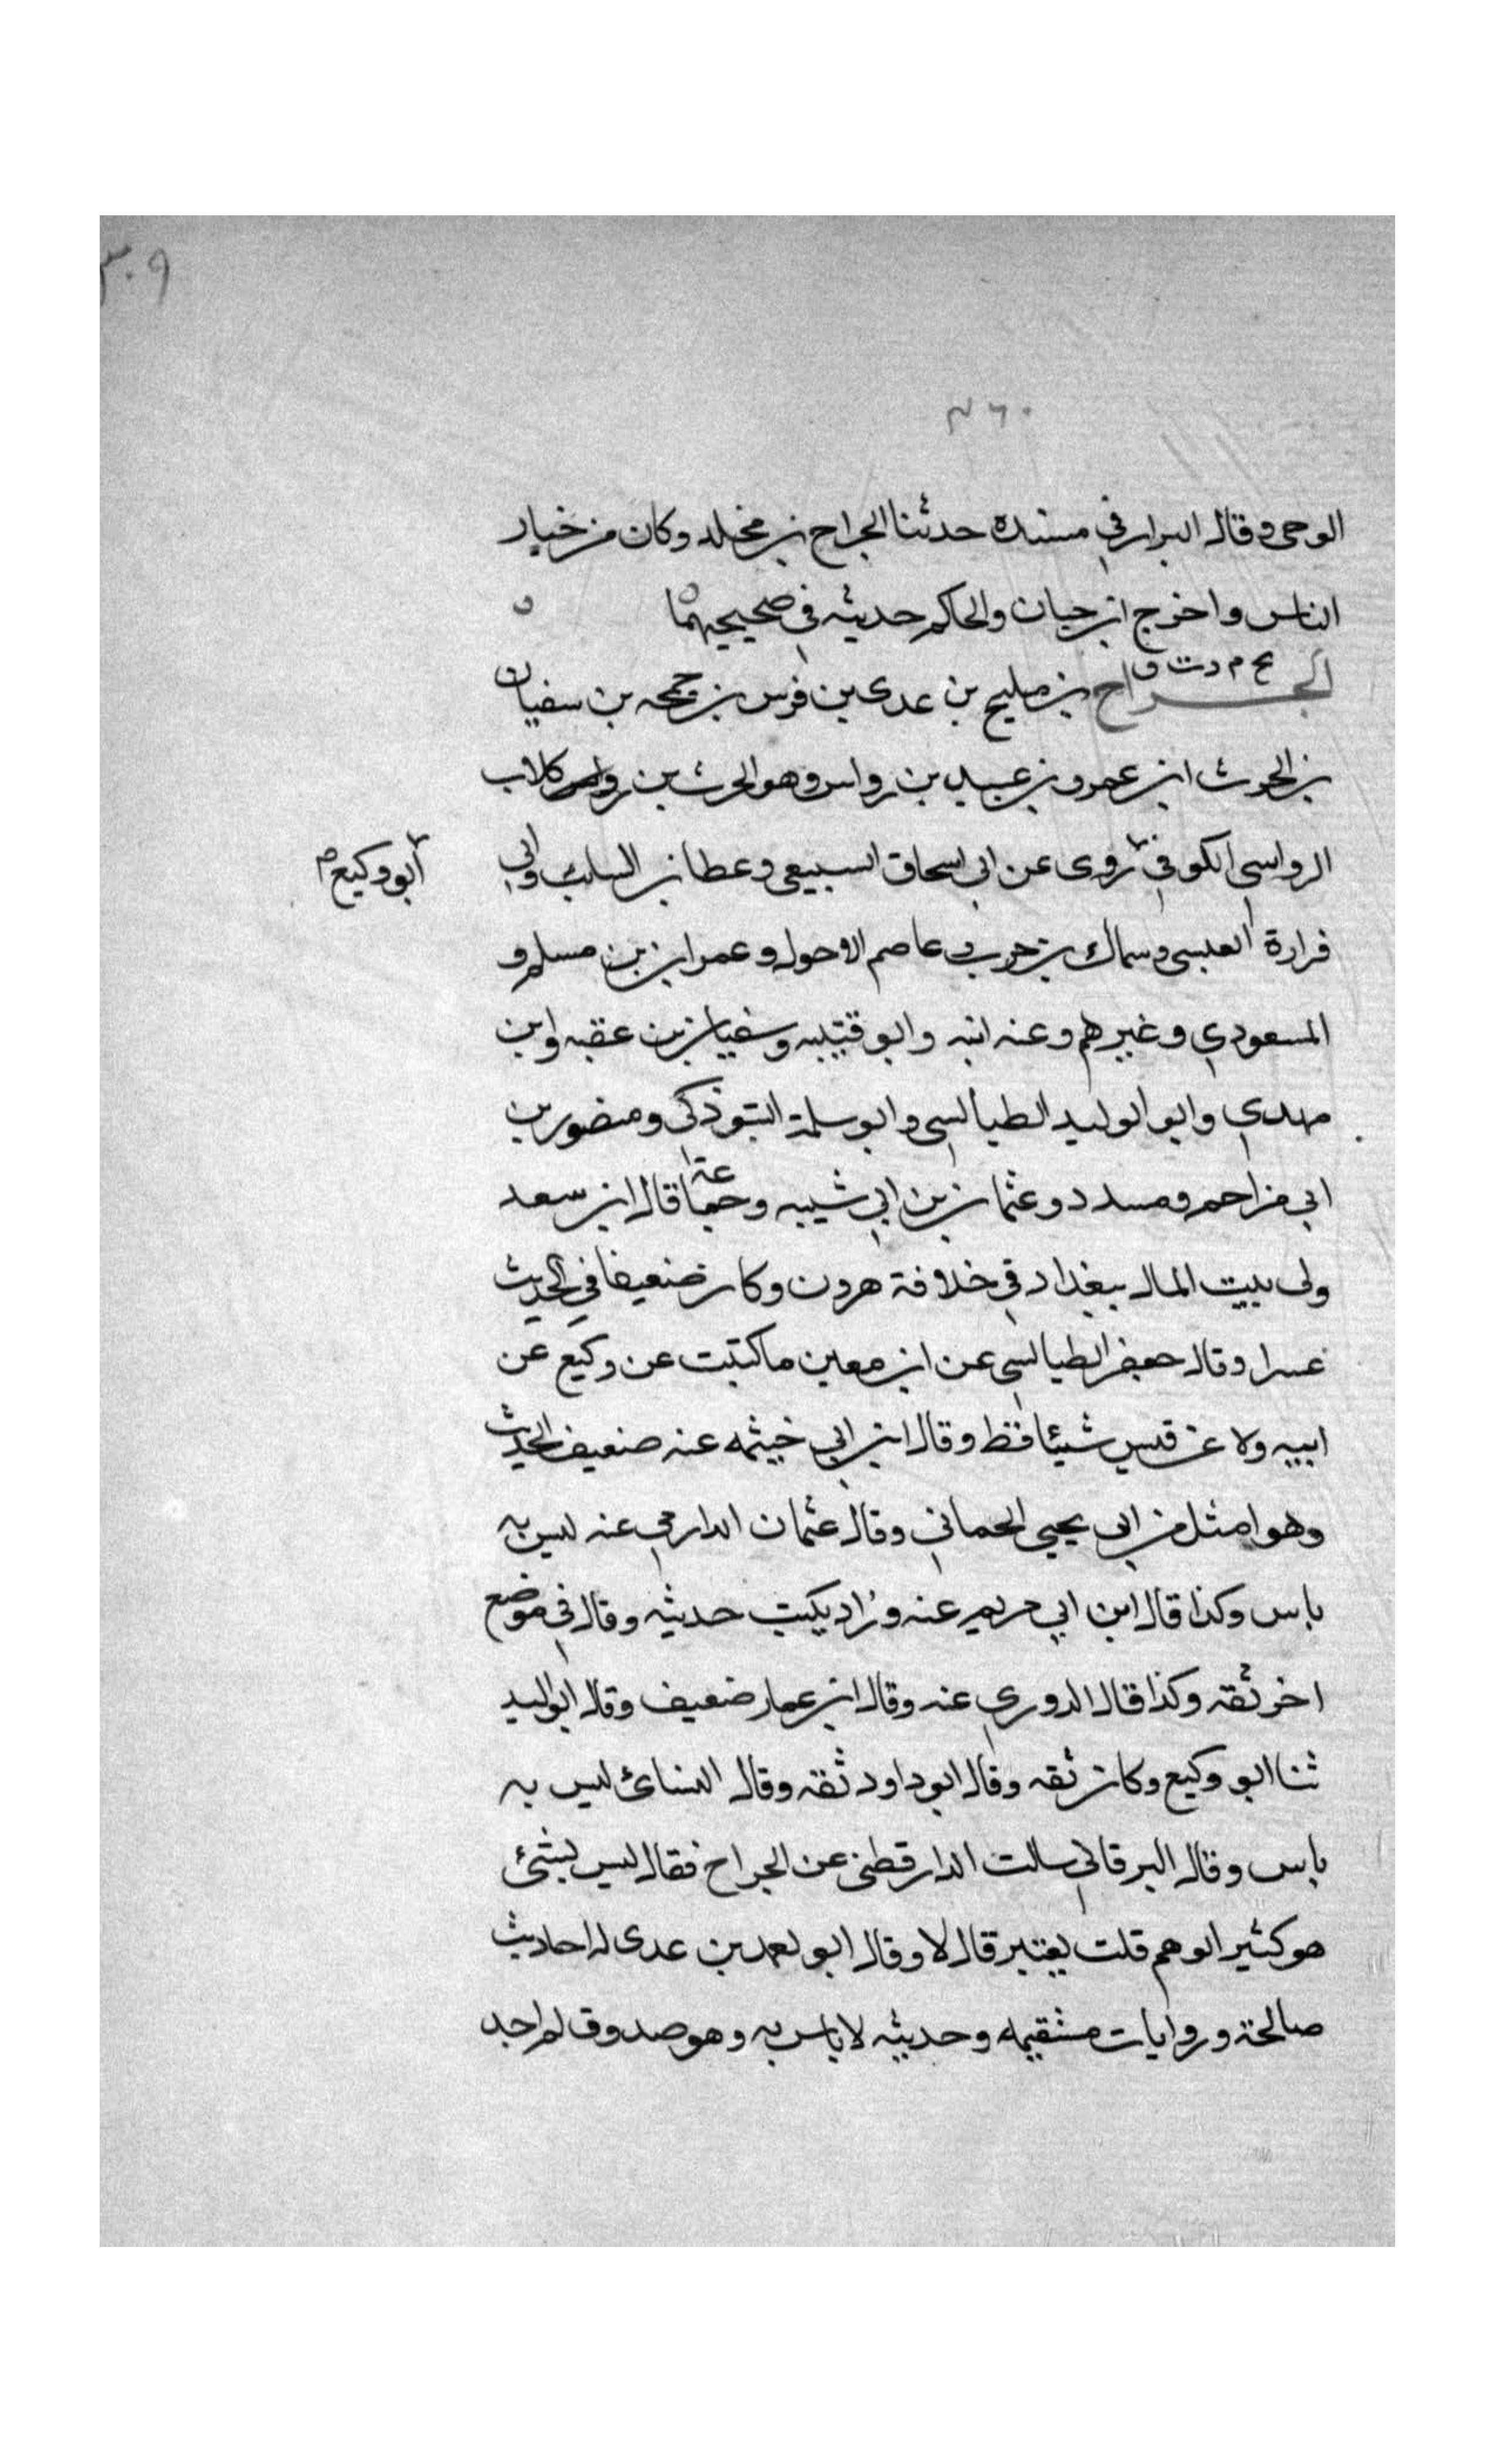 ٣٠٩
٢٦٠
الوحى وقال البزار في مسنده حدثنا الجراح بن مخلد وكان من خيار
الناس واخرج ابن حبان والحاكم حديثه في صحيحيهما ه
بخ م د ت ق
الجراح بن مليح بن عدى بن فرس بن جمحه بن سفيان
بن الحرث ابن عمرو بن عبيد بن رواس وهو الحرث بن كلاب
الرواسي الكوفي روى عن ابى اسحاق السبيعى وعطا بن السايب وابي
أبو وكيع م
فزارة العبسى وسماك بن حرب وعاصم الاحول وعمران بن مسلم و
المسعودي وغيرهم وعنه ابنه وابو قتيبه وسفيان بن عقبه وابن
مهدي وابو الوليد الطيالسى وابو سلمة التبوذكى ومنصور بن
ابى مزاحم ومسدد وعثمان بن ابي شيبه وجماعة قال ابن سعد
ولى بيت المال ببغداد في خلافة هرون وكان ضعيفا في الحديث
عسرا وقال جعفر الطيالسى عن ابن معين ماكتبت عن وكيع عن
ابيه ولا عن قيس شيئا قط وقال ابن ابي خيثمه عنه ضعيف الحديث
وهو امثل من ابى يحيى الحماني وقال عثمان الدارمي عنه ليس به
باس وكذا قال ابن ابي مريم عنه وزاد يكتب حديثه وقال في موضع
اخر ثقه وكذا قال الدوري عنه وقال ابن عمار ضعيف وقال ابو الوليد
ثنا ابو وكيع وكان ثقه وقال ابو داود ثقه وقال النسائ ليس به
باس وقال البرقاني سالت الدارقطنى عن الجراح فقال ليس بشئ
هو كثير الوهم قلت يعتبر قال لا وقال ابو احمد بن عدى له احاديث
صالحة وروايات مستقيمه وحديثه لا باس به وهو صدوق لم اجد